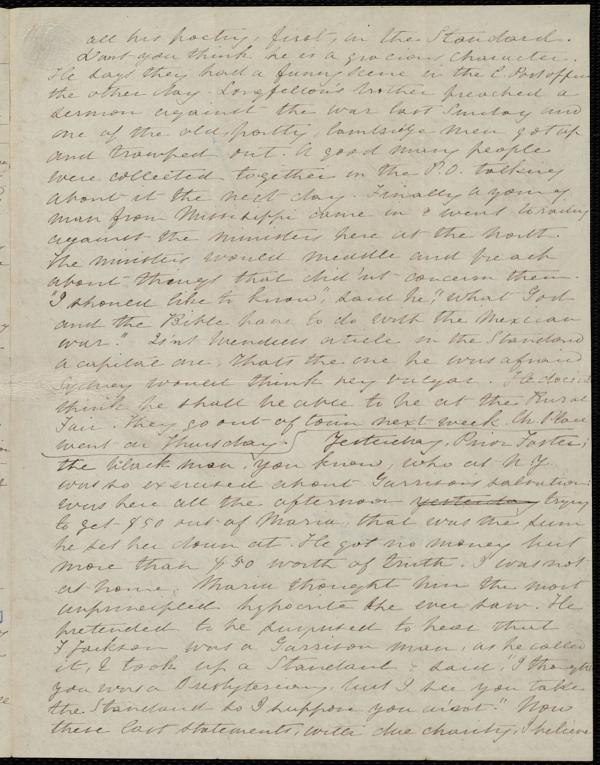 all his poetry, first, in the Standard.
Dont you think he is a gracious character.
He says they had a funny scene in the C. Post office
the other day. Longfellow's brother preached a
sermon against the war last Sunday and
one of the old, portly, Cambridge men got up
and tramped out. A good many people
were collected together in the P.O. talking
about it the next day. Finally a young
man from Mississippi came in & went to railing
against the ministers here at the North.
The ministers would meddle and preach
about things that did'nt concern them.
"I should like to know", said he, "what God
and the Bible have to do with the Mexican
war." Isn't Wendells article in the Standard
a capital one, thats the one he was afraid
Sydney would think very vulgar. He does'nt
think he shall be able to be at the Rural
Fair. They go out of town next week.
went on Thursday. Yesterday, Prior Foster,
the black man, you know, who at N.Y.
was so exercised about Garrisons salvation,
was here all the afternoon yesterday trying
to get $50 out of Maria, that was the sum
he set her down at. He got no money but
more than $50 worth of truth. I was not
at home. Maria thought him the most
unprincipled hypocrite she ever saw. He
pretended to be surprised to hear that
F Jackson was a Garrison man, as he called
it, & took up a Standard & said, "I thought
you was a Presbyterian, but I see you take
the Standard so I suppose you aint." Now
these last statements, with due charity, I believe